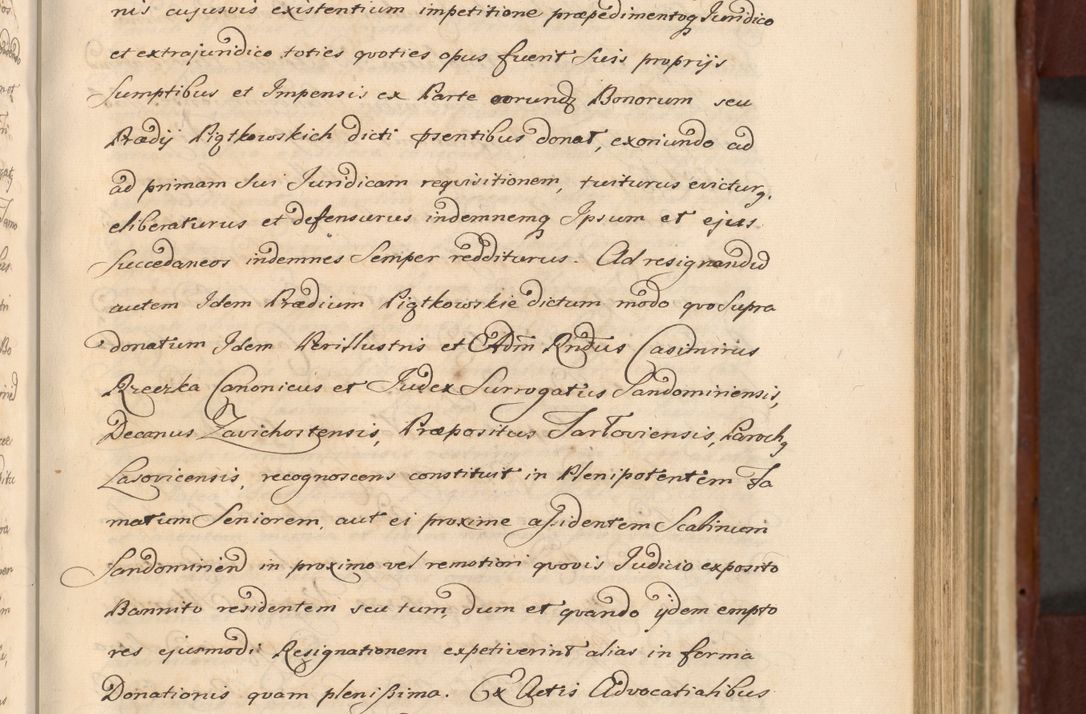 nis cujusvis existentium impetitione præpedimentoq Juridico
et extrajuridico toties qvoties opus fuerit suis proprijs
Sumptibus et Impensis ex Parte eorund Bonorum seu
Prædij Piątkowskich dicti psentibus donat, exoriundo ad
ad primam sui Juridicam reqvisitionem, tuiturus evicturq,
eliberaturus et defensurus indemnemq Ipsum et ejus
Succedaneos indemnes Semper redditurus. Ad resignandũ
autem Idem Prædium Piątkowskie dictum modo qvo Supra
donatum Idem Perillustris et Adm̃ Rñdus Casimirus
Rzeczka Canonicus et Judex Surrogatus Sandomiriensis,
Decanus Zavichostensis, Præpositus Tarłoviensis, Parochq
Lasovicensis, recognoscens constituit in Plenipotentem Fa
matum Seniorem, aut ei proxime assidentem Scabinum
Sandomirien in proximo vel remotiori qvovis Judicio exposito
Bannito residentem seu tum, dum et qvando ijdem empto
res ejusmodi Resignationem expetiverint alias in forma
Donationis qvam plenissima. Ex Actis Advocatialibus